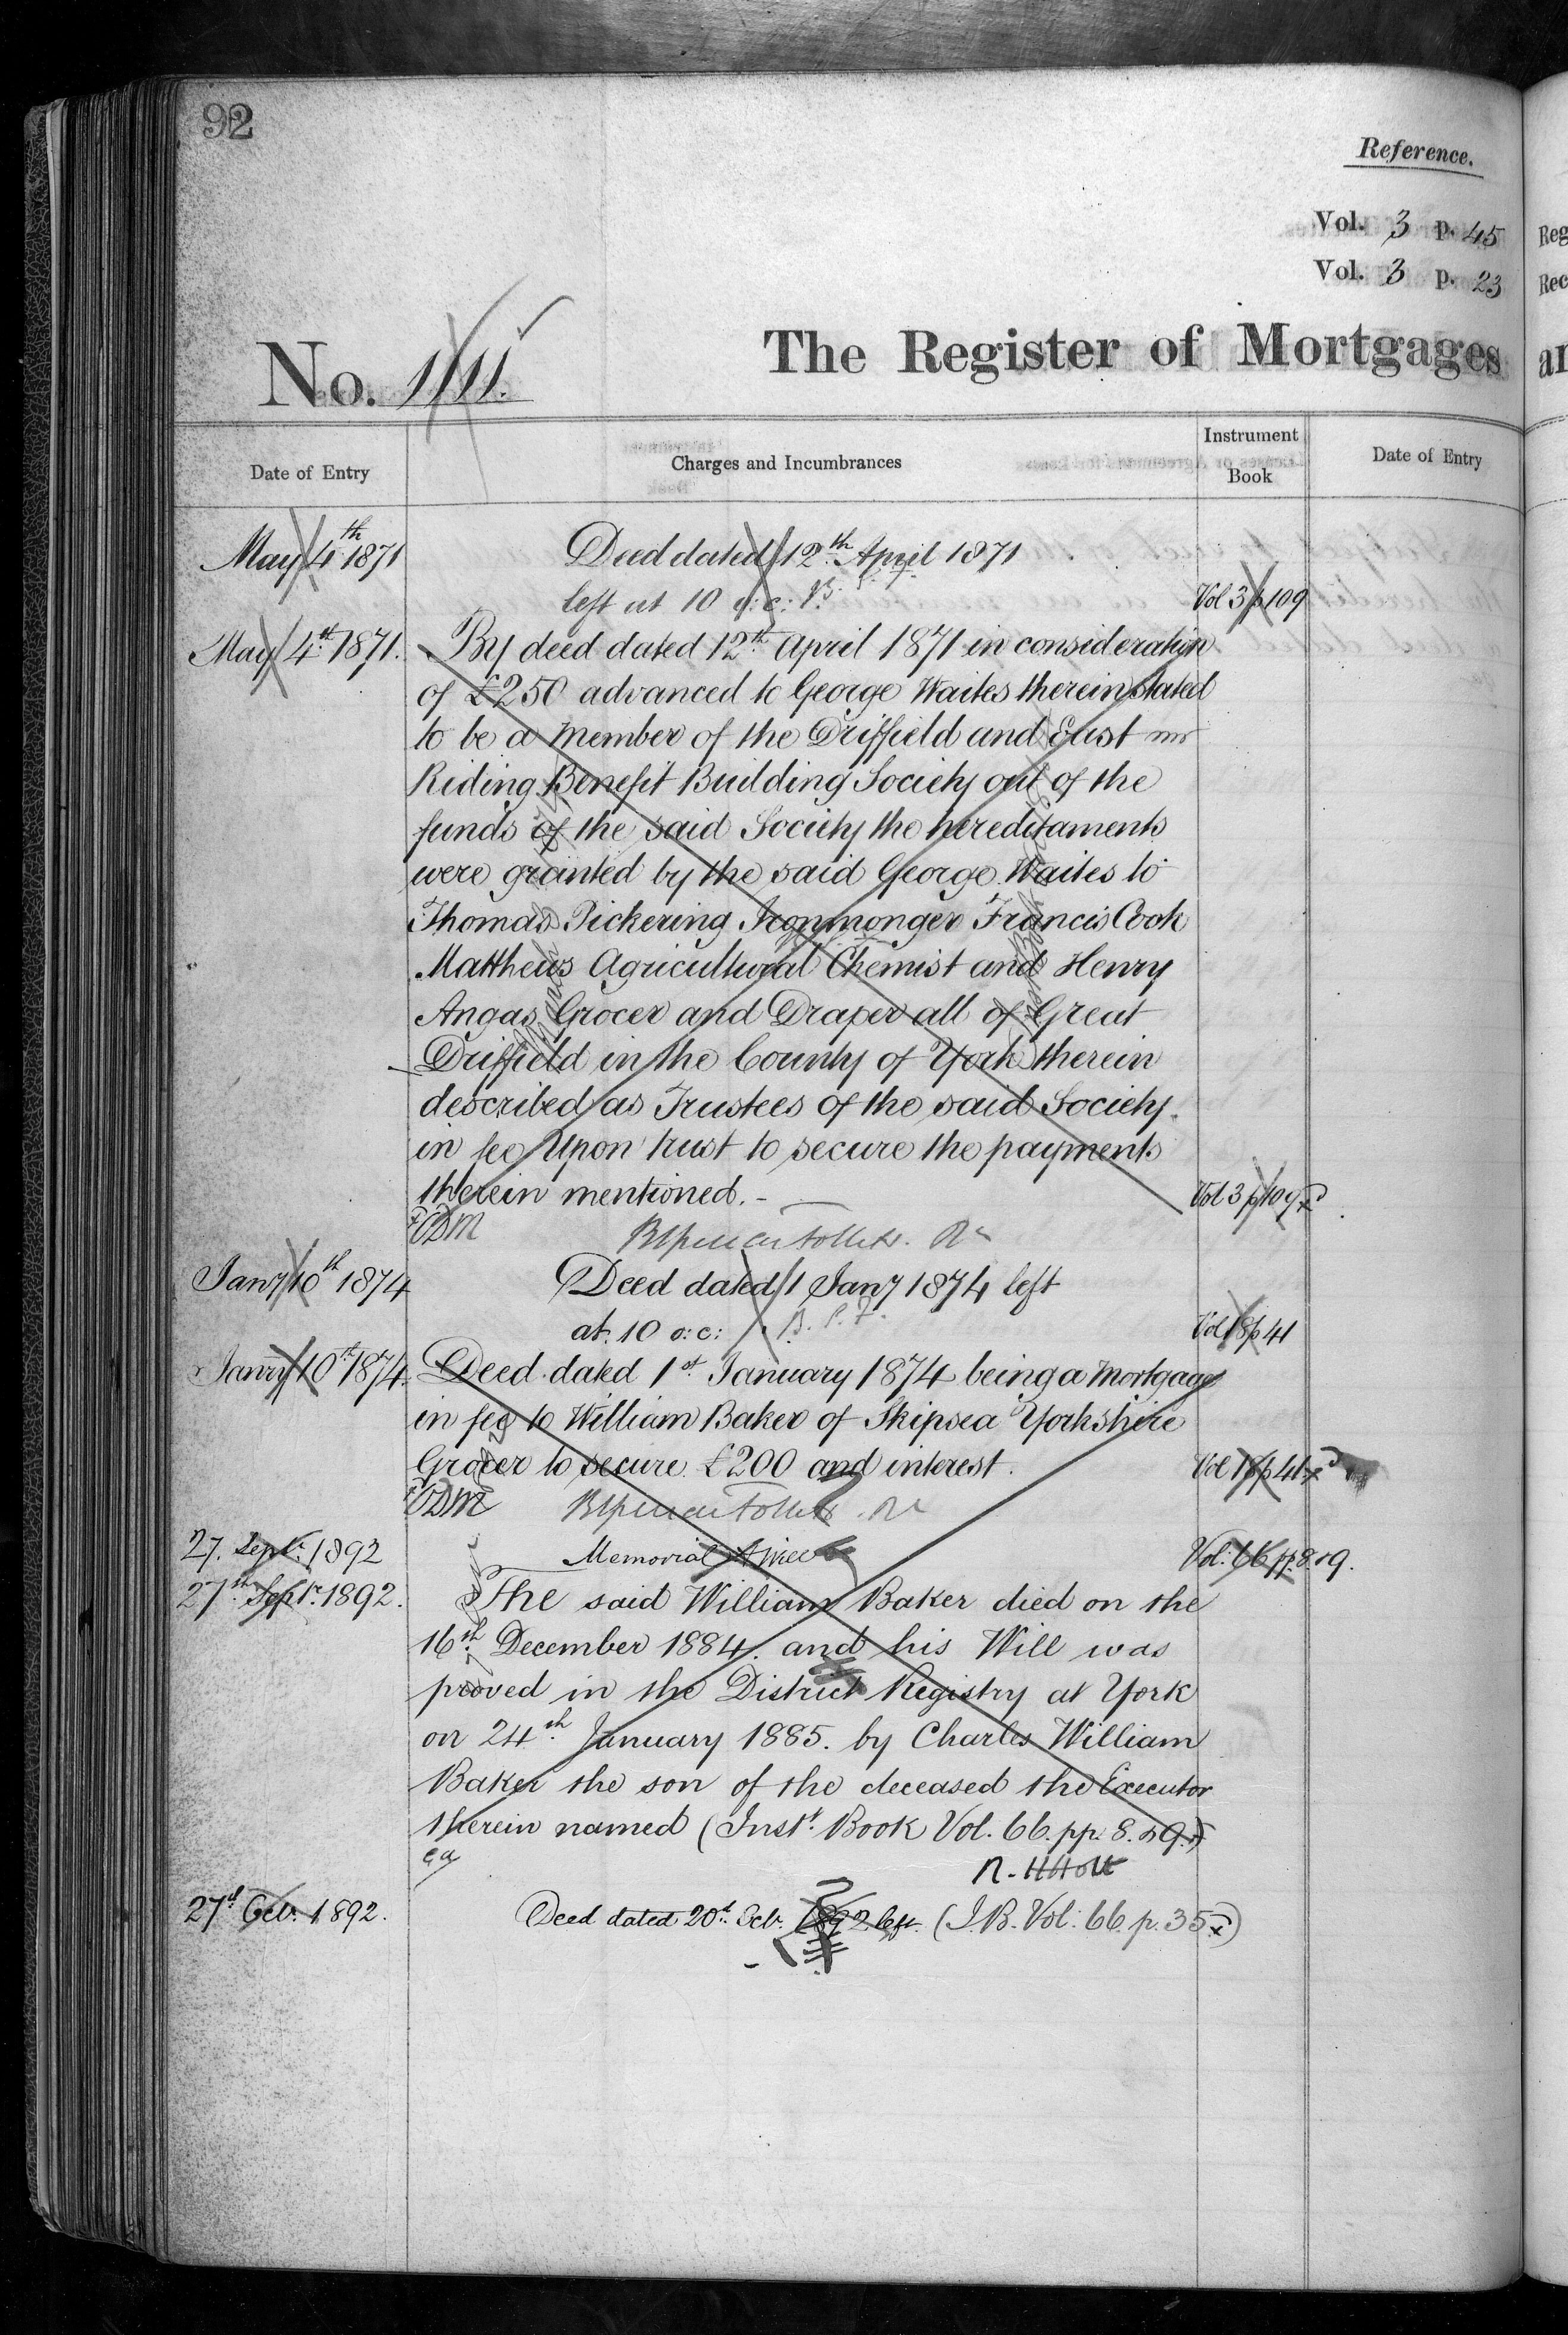 92
Reference.
Vol. 3 p. 45
Vol. 3 p. 23
No. 1111.
The Register of Mortgages
Date of Entry
Charges and Incumbrances
Instrument Book
Date of Entry
May 4th 1871
Deed dated 12th April 1871
left at 10 o:c:
Vol 3 p 109
May 4th 1871.
By deed dated 12th April 1871 in consideration
of £250 advanced to George Waites therein stated
to be a Member of the Driffield and East
Riding Benefit Building Society out of the
funds of the said Society the hereditaments
were granted by the said George Waites to
Thomas Pickering Ironmonger Francis Cook
Matthews Agricultural Chemist and Henry
Angas Grocer and Draper all of Great
Driffield in the County of York therein
described as Trustees of the said Society
in fee Upon trust to secure the payments
therein mentioned. -
Vol 3 p 109
Jany 10th 1874
Deed dated 1 Jany 1874 left
at 10 o:c:
Vol 18 p 41
Janry 10th 1874.
Deed dated 1st January 1874 being a Mortgage
in fee to William Baker of Skipsea Yorkshire
Grocer to secure £200 and interest.
Vol 18 p 41
27. Sept. 1892
Memorial
Vol: 66 pp. 8. 19.
27th Sept. 1892.
The said William Baker died on the
16th December 1884. and his Will was
proved in the District Registry at York
on 24th January 1885. by Charles William
Baker the son of the deceased the Executor
therein named (Inst. Book Vol. 66. pp. 8.
27th Oct. 1892.
Deed dated 20th Oct. 1892 left. (I.B. Vol: 66. p. 35.)
Reg
Rec